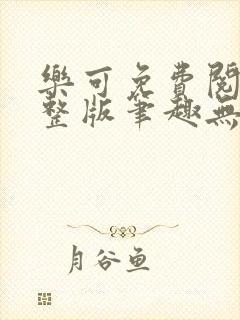 樂可免費閱
整版筆趣無
月谷鱼